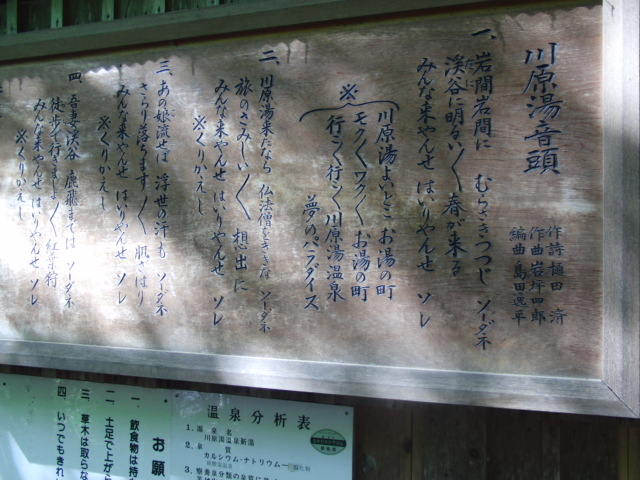 川原湯音頭
作詩 樋田 済
作曲 岩坪四郎
編曲 島田逸平
一、岩間岩間に むらさきつつじ ソーダネ
渓谷に明るい〱 春が来る
みんな来やんせ はいりやんせ ソレ
※
川原湯よいとこ お湯の町
モク〱ワク〱 お湯の町
行こ〱行こ〱 川原湯温泉
夢のパラダイス
二、川原湯来たなら 仏法僧をききな ソーダネ
旅のさみしい〱 想出に
みんな来やんせ はいりやんせ ソレ
※くりかえし
三、あの娘流せば 浮世の汗も ソーダネ
さらり落ちます〱 肌ざはり
みんな来やんせ はいりやんせ ソレ
※くりかえし
四、吾妻渓谷 鹿飛までは ソーダネ
徒歩で行きましよ〱 紅葉狩
みんな来やんせ はいりやんせ ソレ
※くりかえし
お願
一、飲食物は持
二、土足で上がら
三、草木は取らな
四、いつでもきれ
温泉分析表
1. 温泉名
川原湯温泉新湯
2. 泉質
カルシウム・ナトリウム－塩化物
3. 療養泉分類の泉質に基